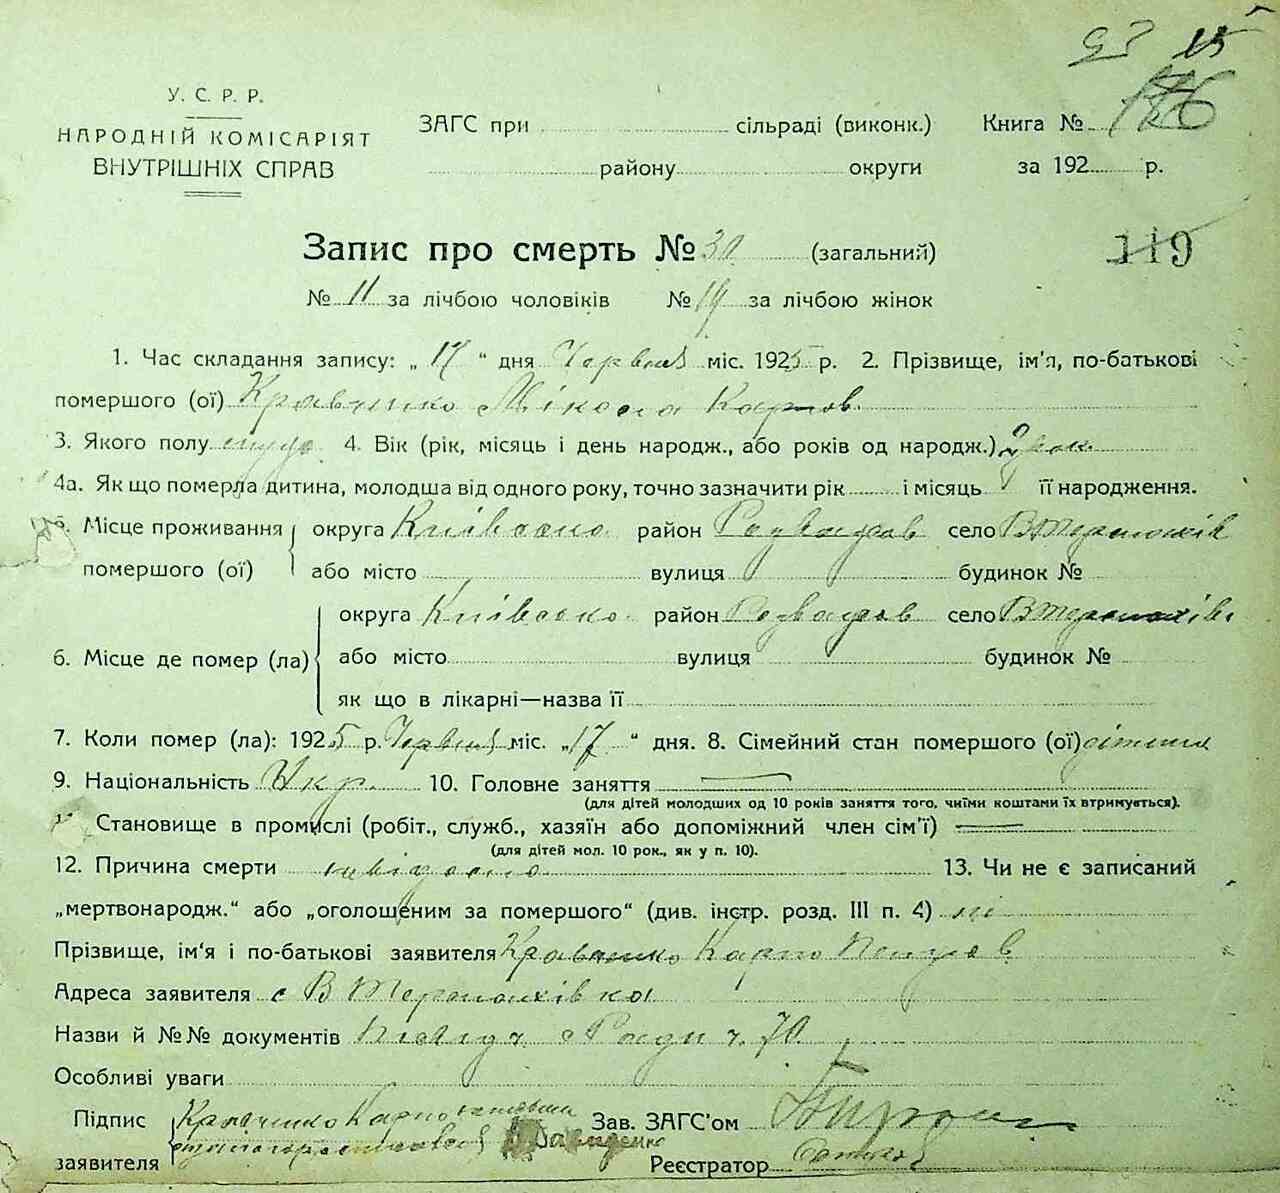 15
У. С. Р. Р.
НАРОДНІЙ КОМІСАРІЯТ
ВНУТРІШНІХ СПРАВ
ЗАГС при сільраді (виконк.) Книга №
району округи за 192 р.
Запис про смерть № 30 (загальний) 119
№ 11 за лічбою чоловіків № 19 за лічбою жінок
1. Час складання запису: „ 17 “ дня Червня міс. 1925 р. 2. Прізвище, ім'я, по-батькові
помершого (ої) Кравченко Мікола Карпов
3. Якого полу 4. Вік (рік, місяць і день народж., або років од народж.) 2 роки
4а. Як що померла дитина, молодша від одного року, точно зазначити рік і місяць її народження.
5. Місце проживання округа Київсько район Розважов село
помершого (ої) або місто вулиця будинок №
округа Київсько район Розважов село
6. Місце де помер (ла) або місто вулиця будинок №
як що в лікарні—назва її
7. Коли помер (ла): 1925 р. Червня міс. „ 17 “ дня. 8. Сімейний стан помершого (ої) дитина
9. Національність Укр. 10. Головне заняття
(для дітей молодших од 10 років заняття того, чиїми коштами їх втримується).
Становище в промислі (робіт., служб., хазяїн або допоміжний член сім'ї)
(для дітей мол. 10 рок., як у п. 10).
12. Причина смерти 13. Чи не є записаний
„мертвонародж.“ або „оголошеним за помершого“ (див. інстр. розд. III п. 4) ні
Прізвище, ім'я і по-батькові заявителя Кравченко Карпо Петров
Адреса заявителя с В Терпохівка
Назви й №№ документів с Ради ч. 70
Особливі уваги
Підпис Кравченко Карпо Зав. ЗАГС'ом
заявителя Давиденко Реєстратор